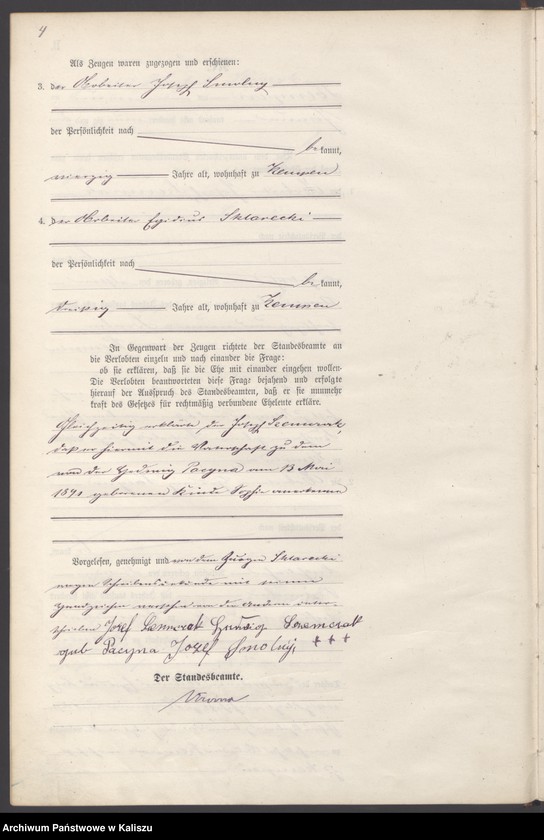 4
Als Zeugen waren zugezogen und erschienen:
3. der Arbeiter Josef Smolny
der Persönlichkeit nach
bekannt,
vierzig Jahre alt, wohnhaft zu Kempen
4. der Arbeiter Egidius Sklarecki
der Persönlichkeit nach
bekannt,
dreißig Jahre alt, wohnhaft zu Kempen
In Gegenwart der Zeugen richtete der Standesbeamte an
die Verlobten einzeln und nach einander die Frage:
ob sie erklären, daß sie die Ehe mit einander eingehen wollen.
Die Verlobten beantworteten diese Frage bejahend und erfolgte
hierauf der Ausspruch des Standesbeamten, daß er sie nunmehr
kraft des Gesetzes für rechtmäßig verbundene Eheleute erkläre.
Gleichzeitig erklärte der Josef
daß er hiermit die Vaterschaft zu dem
von der Hedwig Pacyna am 13 Mai
geborenen Kinde Sophie anerkenne
Vorgelesen, genehmigt und von dem Zeugen Sklarecki
wegen Schreibensunkunde mit seinem
Handzeichen versehen von den Anderen unter-
schrieben Jozef
geb Pacyna Jozef Smolny, +++
Der Standesbeamte.
Archiwum Państwowe w Kaliszu